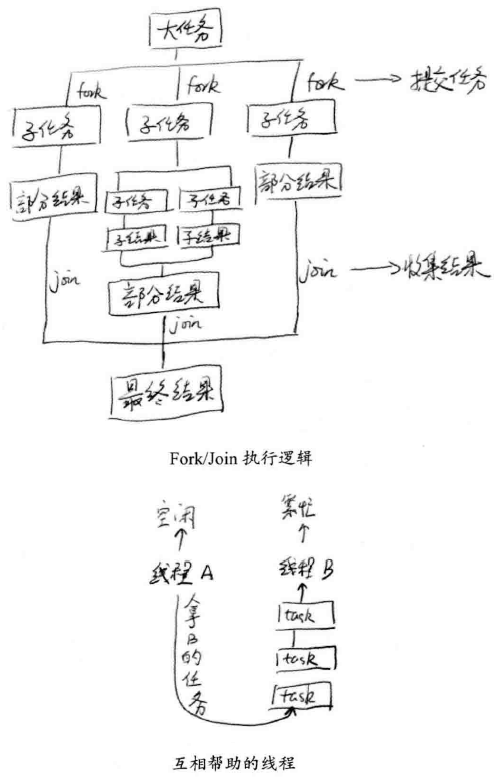 大任务
fork
fork
fork
提交任务
子任务
子任务
子任务
部分结果
子任务
子任务
部分结果
子结果
子结果
join
部分结果
join
收集结果
join
最终结果
Fork/Join 执行逻辑
空闲
繁忙
线程 A
线程 B
拿B的任务
task
task
task
互相帮助的线程